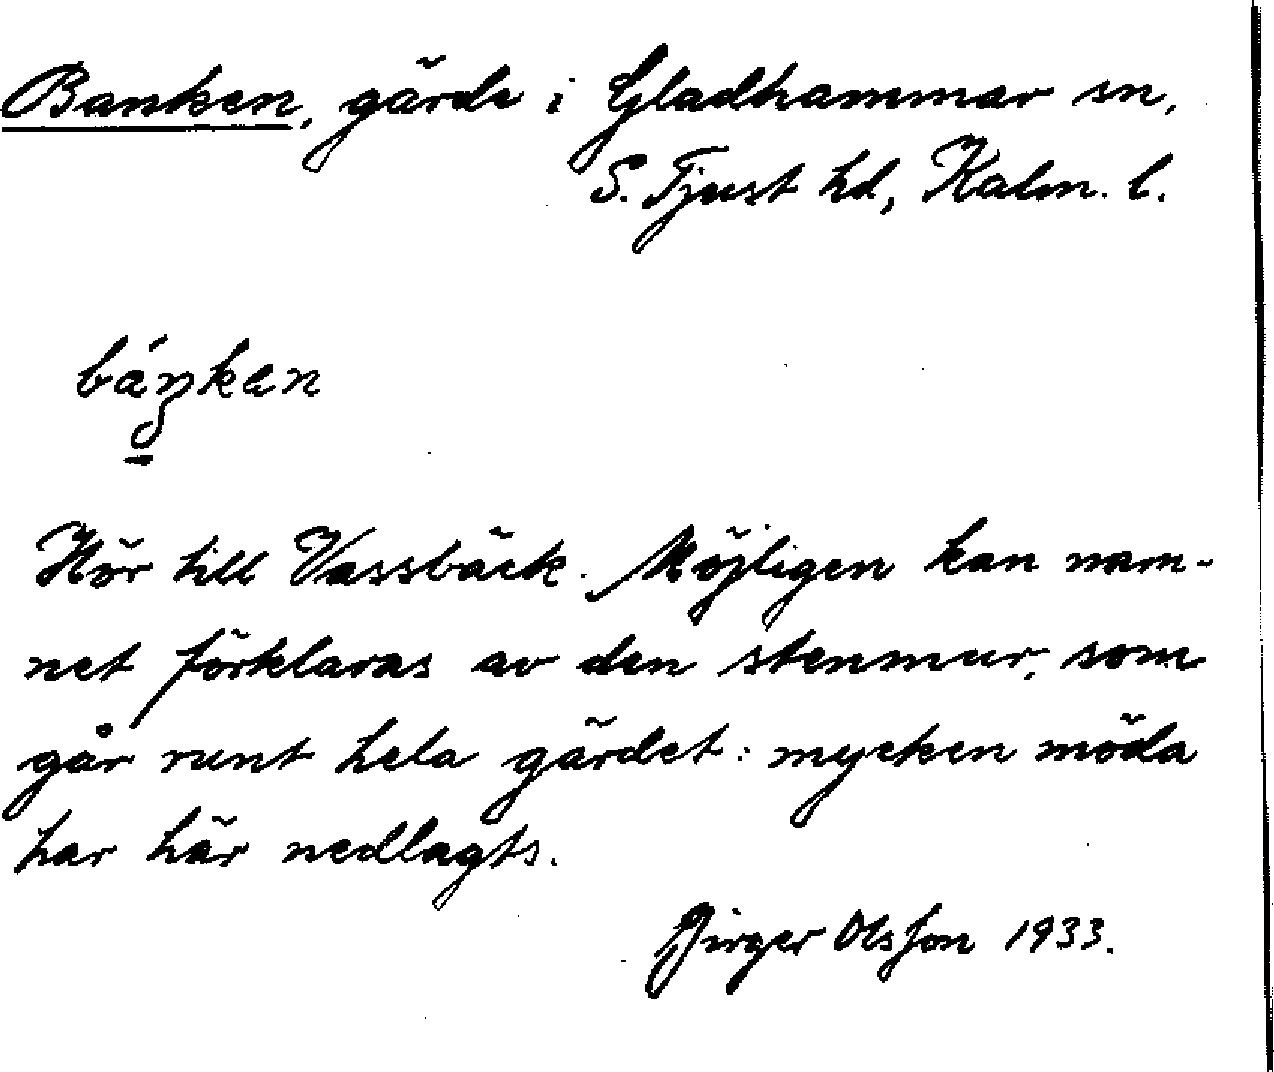 Banken, gärde i Gladhammar sn,
S. Tjust hd, Kalm. l.
Hör till Vassbäck. Möjligen kan nam-
net förklaras av den stenmur, som
går runt hela gärdet: mycken möda
har här nedlagts.
Birger Olsson 1933.